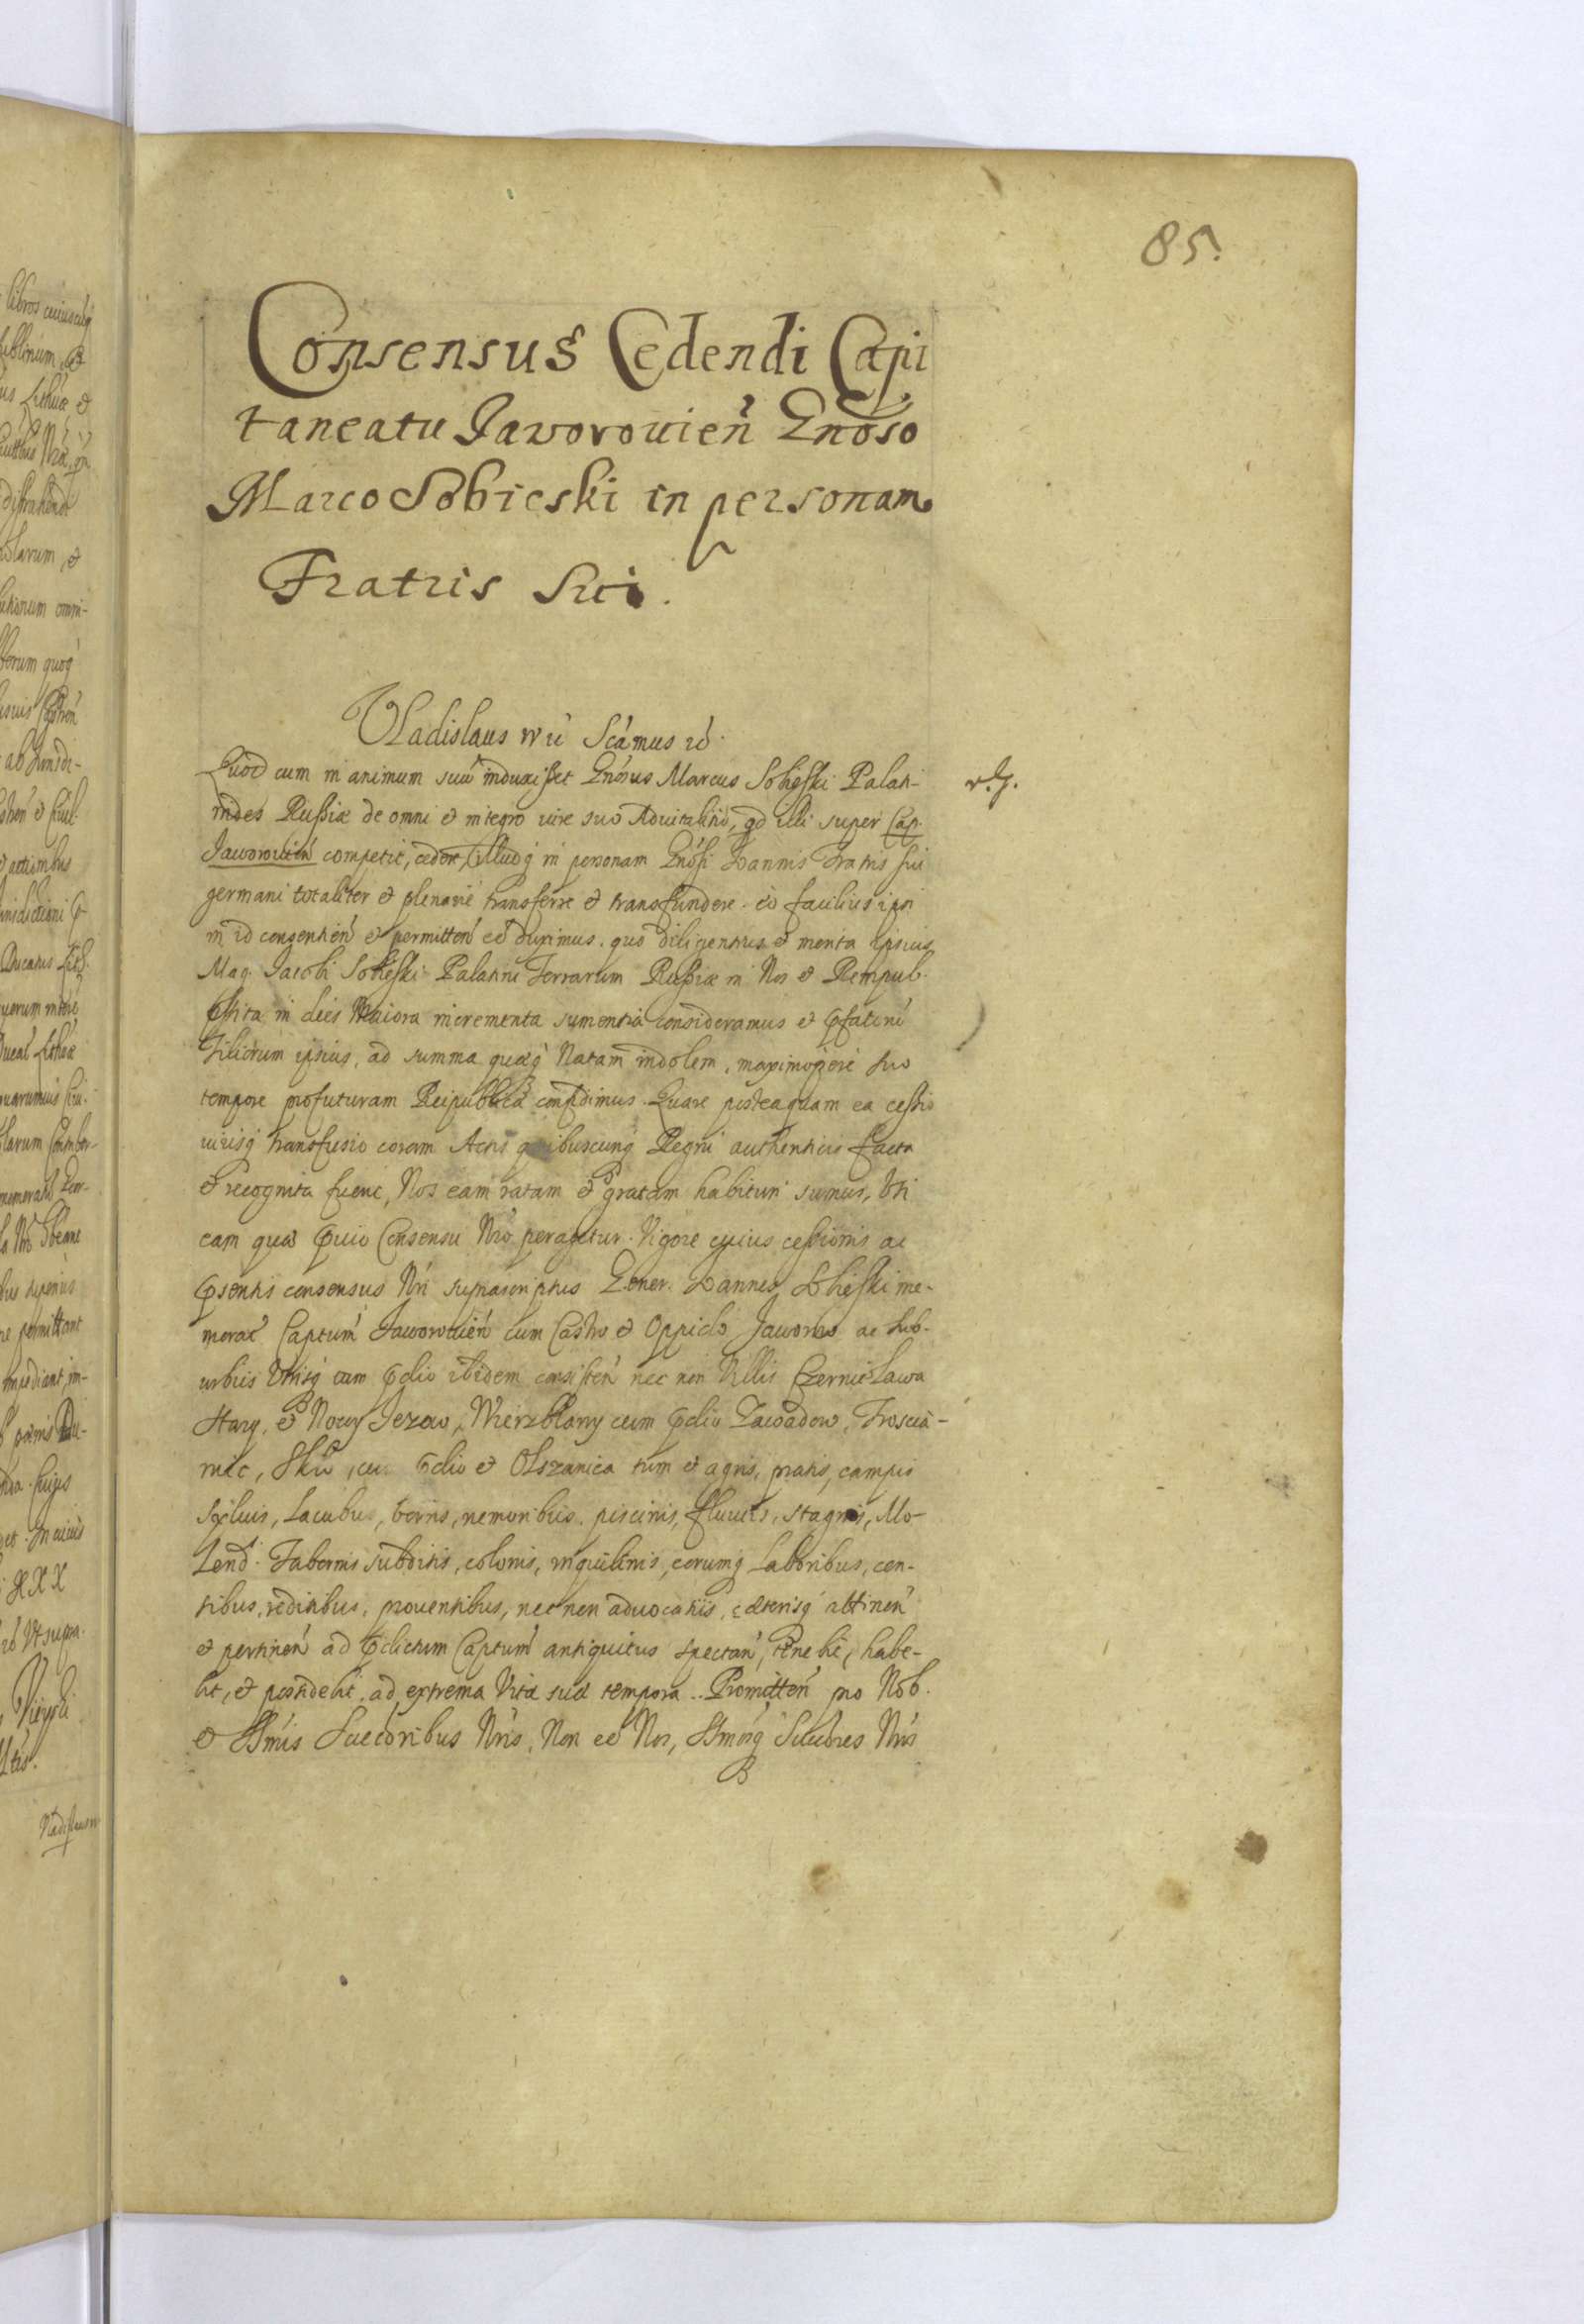 85.
Consensus Cedendi Capi
taneatu Jaworouien̄ Gnoso
Marco Sobieski in personam
Fratris Sui.
Vladislaus IV ú Scámus ꝛć.
Quod cum in animum suū induxisset Gnósus Marcus Sobieski Palati-
nides Russiæ de omni et integro iure suo Aduitalitio, qd illi super Cap.
Jaworouień competit, cedere, illudq́ in personam Gnósi Joannis Fratris sui
germani totaliter et plenarie transferre et transfundere. eò facilius ipsi
in id consentień et permitteń eē duximus. quo diligentius et merita ipsius
Mag. Jacobi Sobieski Palatini Terrarum Russiæ in Nos et Rempub.
pstita in dies Maiora incrementa sumentia consideramus et
Filiorum ipsius, ad summa quæq́ Natam indolem, maximopere suo
tempore profuturam Reipublicæ confidimus. Quare posteaquam ea cessio
iurisq́ transfusio coram Actis quibuscunq́ Regni authenticis facta
et recognita fuerit, Nos eam ratam et gratam habituri sumus, Vti
eam quæ puio Consensu Nró peragetur. Vigore cuius cessionis ac
psentis consensus Nri suprascriptus Gener. Joannes Sobieski me-
morat́ Captum̄ Jaworouień cum Castro et Oppido Jaworow ac Sub-
urbiis Vtrisq́ cum pdio ibidem consisteń nec non Villis Czernielawa
Stary, et Nowy Jezow, Wierzblany cum pdio Zawadow, Troscia-
niec, Sklo, cu pdio et Olszanica tum et agris, pratis, campis
syluis, Lacubus, borris, nemoribus. piscinis, fluuiis, stagnis, Mo-
lend. Tabernis subditis, colonis, inquilinis, eorumq́ Laboribus, cen-
sibus, reditibus, prouentibus, nec non aduocatiis, cæterisq́ attineń
et pertineń ad pdictum Captum̄ antiquitus spectań, tenebit, habe-
bit, et possidebit. ad extrema Vitæ suæ tempora. Promitteń pro Nob.
et SSmis Succoribus Nris, Non eē Nos, SSmosq́ Succores Nros